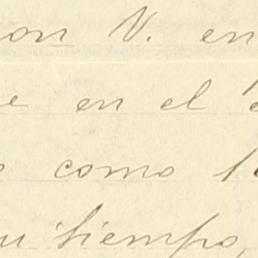 on V. en
en el
como
tiempo,